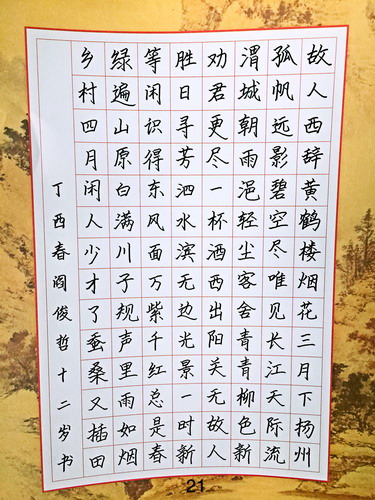 故人西辞黄鹤楼烟花三月下扬州
孤帆远影碧空尽唯见长江天际流
渭城朝雨浥轻尘客舍青青柳色新
劝君更尽一杯酒西出阳关无故人
胜日寻芳泗水滨无边光景一时新
等闲识得东风面万紫千红总是春
绿遍山原白满川子规声里雨如烟
乡村四月闲人少才了蚕桑又插田
丁酉春阎俊哲十二岁书
21